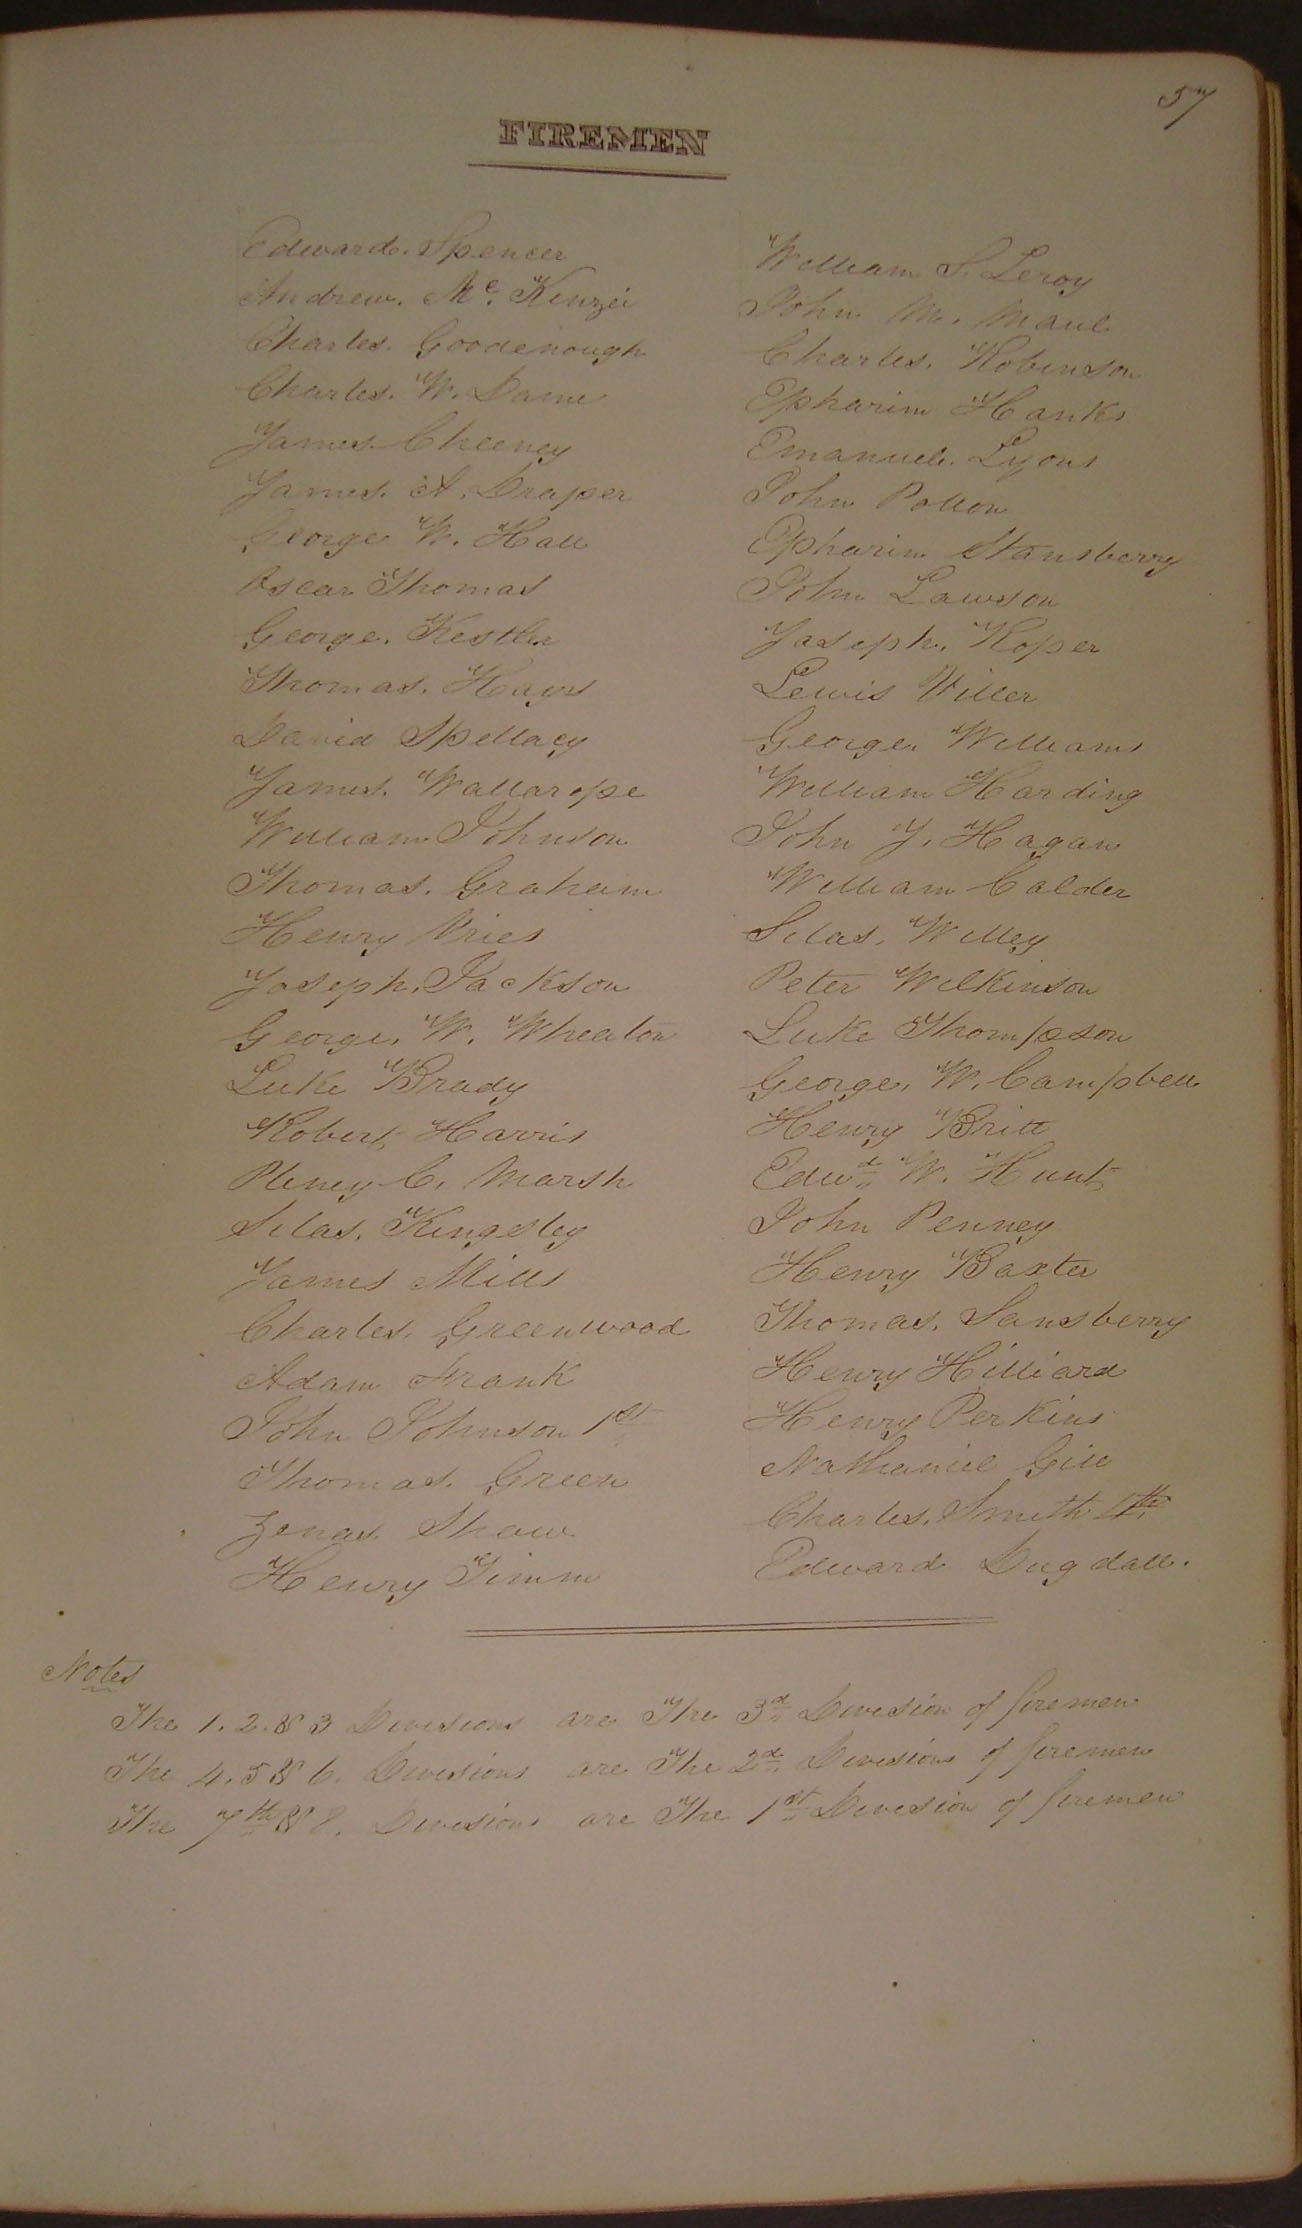 57
FIREMEN
Edward. Spencer
Andrew. Mc. Kenzei
Charles. Goodenough
Charles. W. Dame
James Cheeney
James. A. Draper
George W. Hall
Oscar Thomas
George. Kestler
Thomas. Hays
David Spellacy
James. Wallarope
William Johnson
Thomas. Graham
Henry Vries
Joseph. Jackson
George. W. Wheaton
Luke Brady
Robert Harris
Pliney C. Marsh
Silas. Kingsley
James Mills
Charles. Greenwood
Adam Frank
John Johnson 1st
Thomas. Green
Zenas. Shaw
Henry Timm
William S. Leroy
John M. Maul
Charles. Robinson
Epharim Hanks
Emanuel. Lyons
John Pollon
Epharim Stansberry
John Lawson
Joseph. Roper
Lewis Viller
George. Williams
William Harding
John J. Hagan
William Calder
Silas. Willey
Peter Wilkinson
Luke Thompson
George. W. Campbell
Henry Britt
Edwd. W. Hunt
John Penney
Henry Baxter
Thomas. Sansberry
Henry Hilliard
Henry Perkins
Nathaniel Gill
Charles. Smith 4th
Edward Dugdall.
Notes
The 1. 2. & 3 Divisions are The 3d Division of firemen
The 4. 5 & 6. Divisions are The 2d Division of firemen
The 7th & 8. Divisions are The 1st Division of firemen